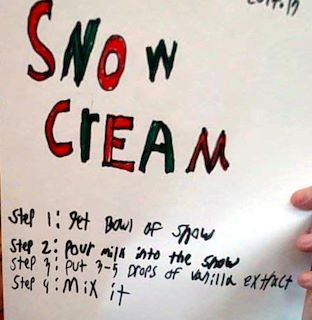 SNOW
CrEAM
Step 1: get Bowl of snow
Step 2: Pour milk into the snow
Step 3: Put 3-5 Drops of vanilla extract
Step 4: Mix it